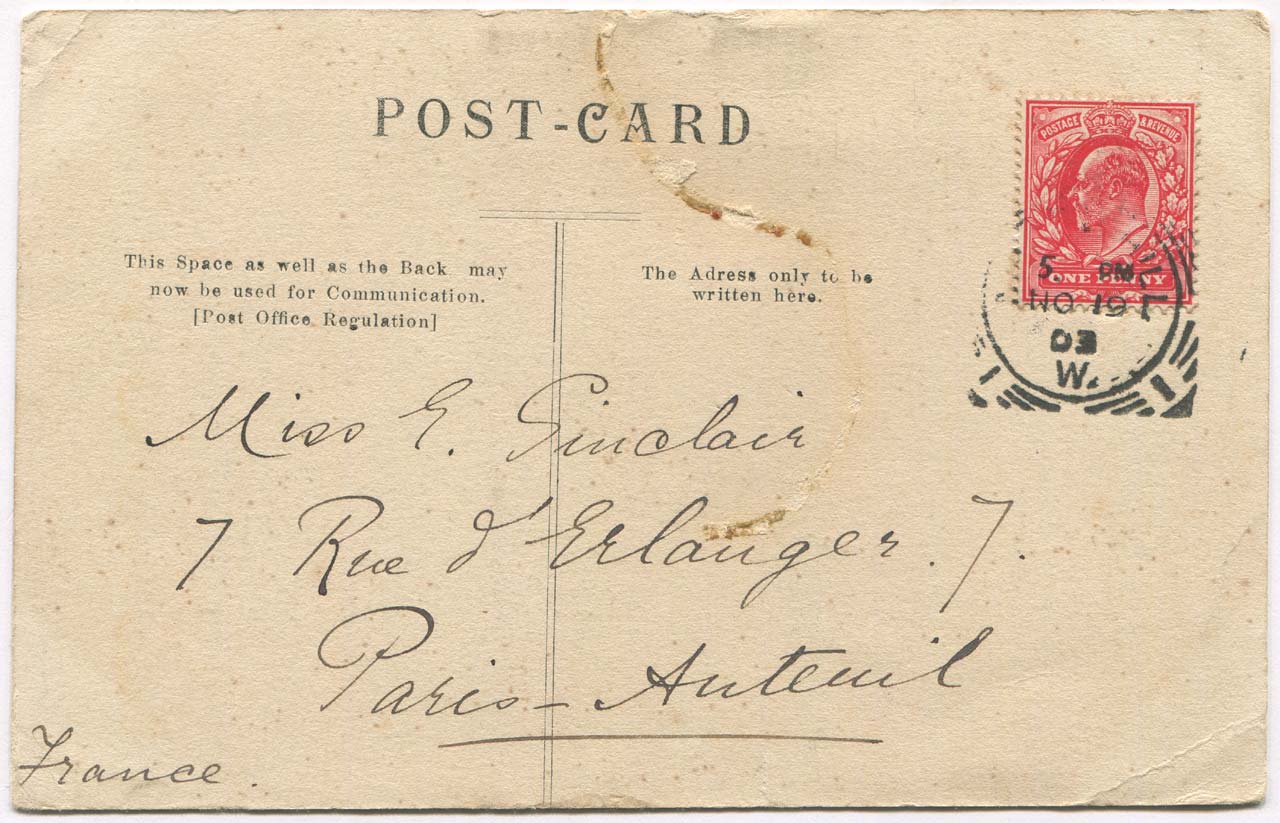 POST-CARD
POSTAGE & REVENUE
ONE PENNY
5. PM
NO 19
03
W.
1 1
This Space as well as the Back may
now be used for Communication.
[Post Office Regulation]
The Adress only to be
written here.
Miss E. Sinclair
7 Rue d'Erlanger. 7.
Paris - Auteuil
France.